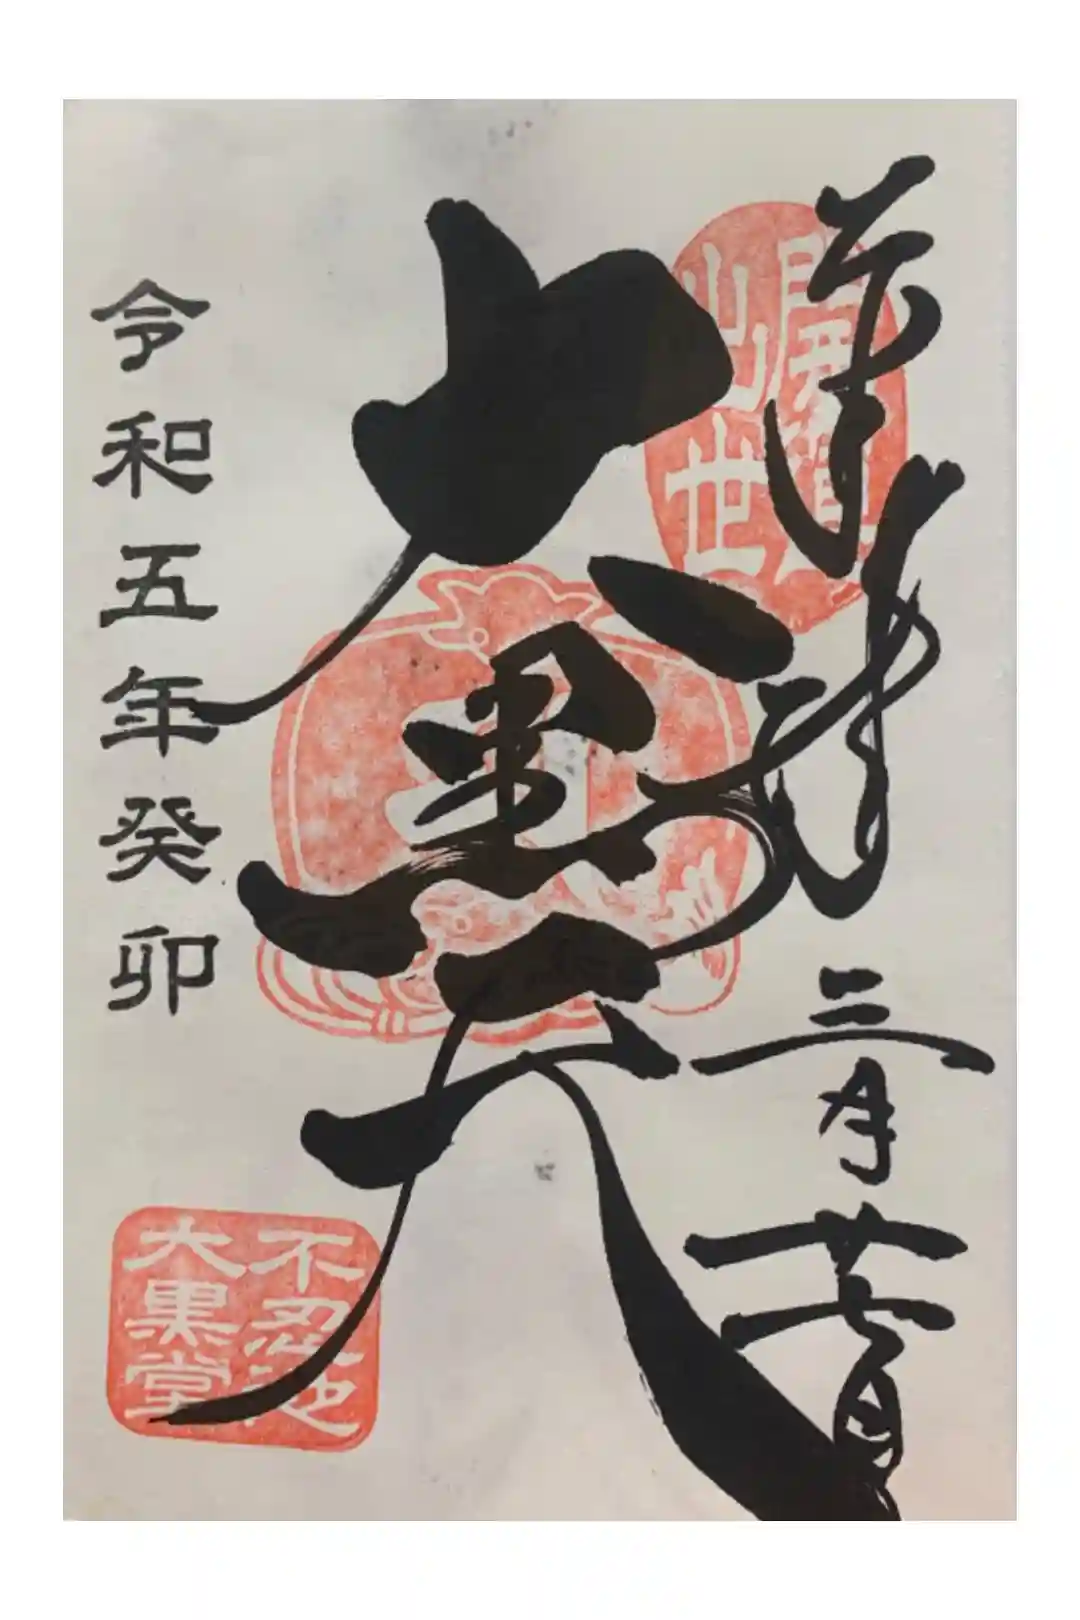 奉拝
三月廿七日
開
出世
大黒天
令和五年癸卯
不忍池
大黒堂